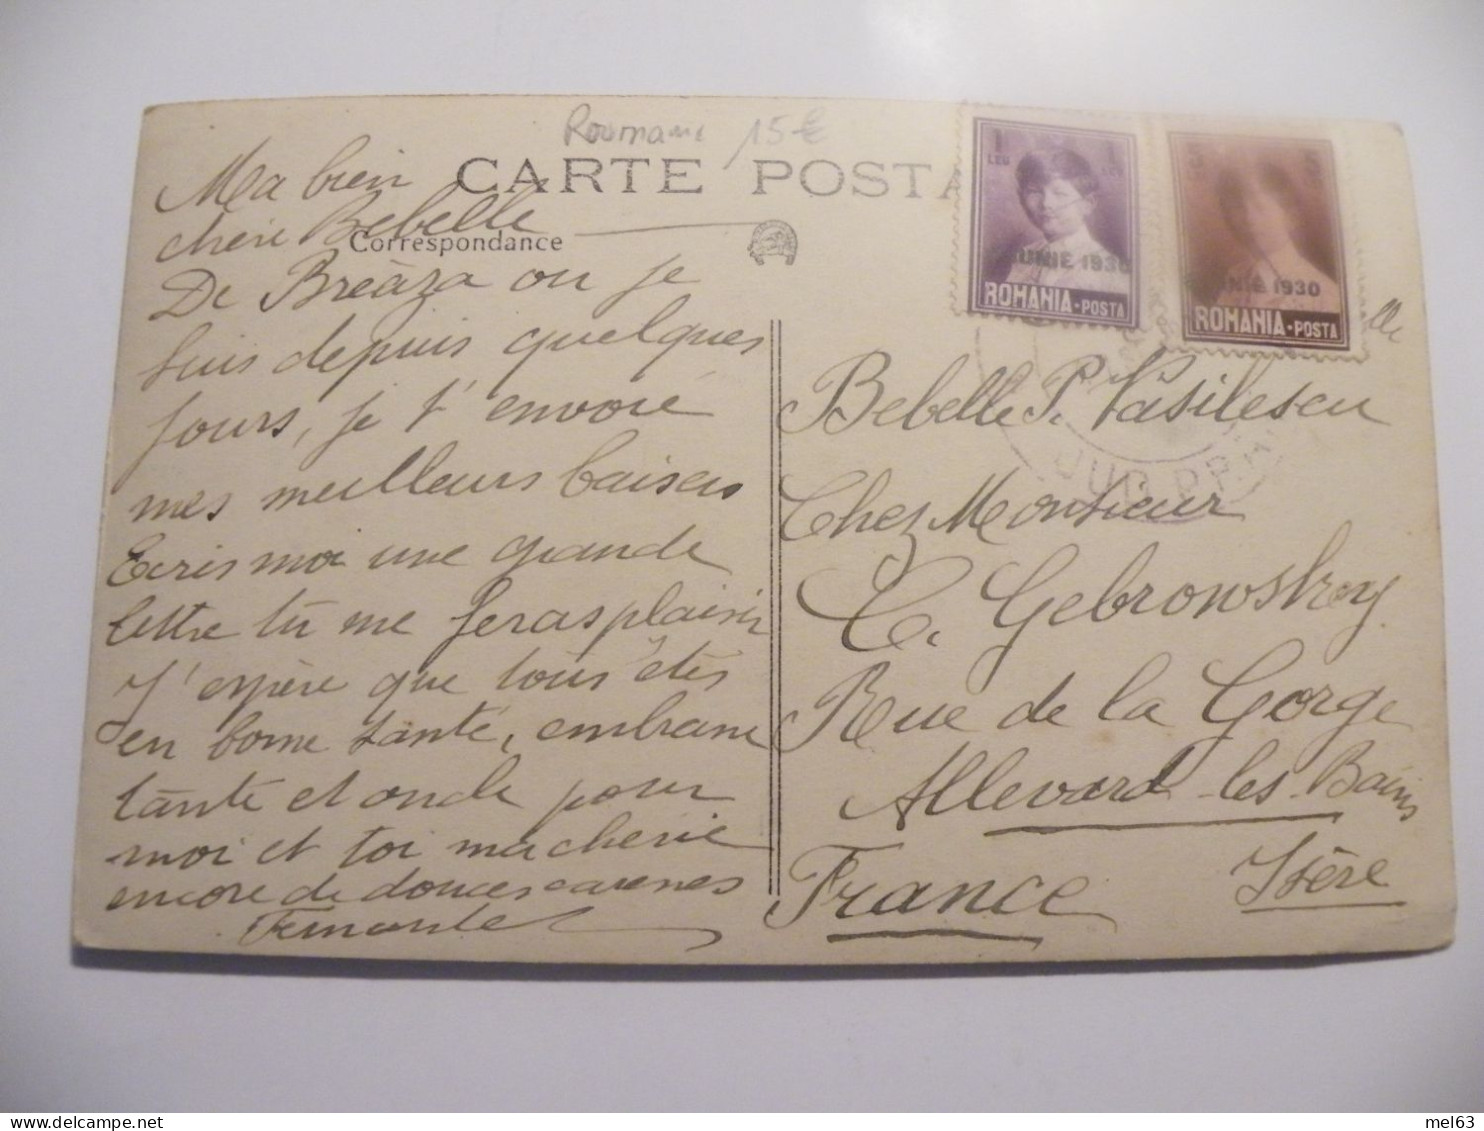 Roumanie 15€
CARTE POSTA
Correspondance
Ma bien
chère Bebelle
De Breàza ou je
suis depuis quelques
jours, je t'envoie
mes meilleurs baisers
Ecris moi une grande
lettre tu me feras plaisir
J'espère que tous êtes
en bonne santé, embrasse
tante et oncle pour
moi et toi ma cherie
encore de douces caresses
1 LEU 1 LEU
8 IUNIE 1930
ROMANIA-POSTA
5 5
IUNIE 1930
ROMANIA-POSTA
JUD. PRAHOVA
Mlle
Bebelle P. Vasilescu
Chez Monsieur
C. Gebrowskey
Rue de la Gorge
Allevard-les-Bains
Isère
France
mel63